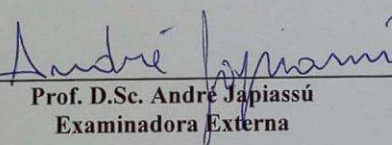 André Japiassú
Prof. D.Sc. André Japiassú
Examinadora Externa